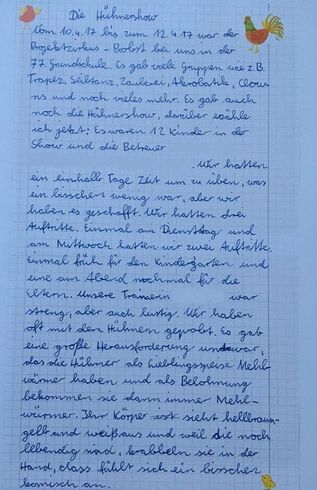 Die Hühnershow
Vom 10.4.17 bis zum 12.4.17 war der
Projektzirkus - Probst bei uns in der
77 Grundschule. Es gab viele Gruppen wie z.B.
Trapez, Seiltanz, Zauberei, Akrobatik, Clow-
ns und noch vieles mehr. Es gab auch
noch die Hühnershow, darüber erzähle
ich jetzt: Es waren 12 Kinder in der
Show und die Betreuer
. Wir hatten
ein einhalb Tage Zeit um zu üben, was
ein bisschen wenig war, aber wir
haben es geschafft. Wir hatten drei
Auftritte. Einmal am Dienstag und
am Mittwoch hatten wir zwei Auftritte.
Einmal früh für den Kindergarten und
eine am Abend nochmal für die
Eltern. Unsere Trainerin war
streng, aber auch lustig. Wir haben
oft mit den Hühnern geprobt. Es gab
eine große Herausforderung undzwar,
das die Hühner als Lieblingsspeise Mehl-
würmer haben und als Belohnung
bekommen sie dann immer Mehl-
würmer. Ihr Körper ist sieht hellbraun-
gelb und weiß aus und weil die noch
lebendig sind, krabbeln sie in der
Hand, dass fühlt sich ein bisschen
komisch an.